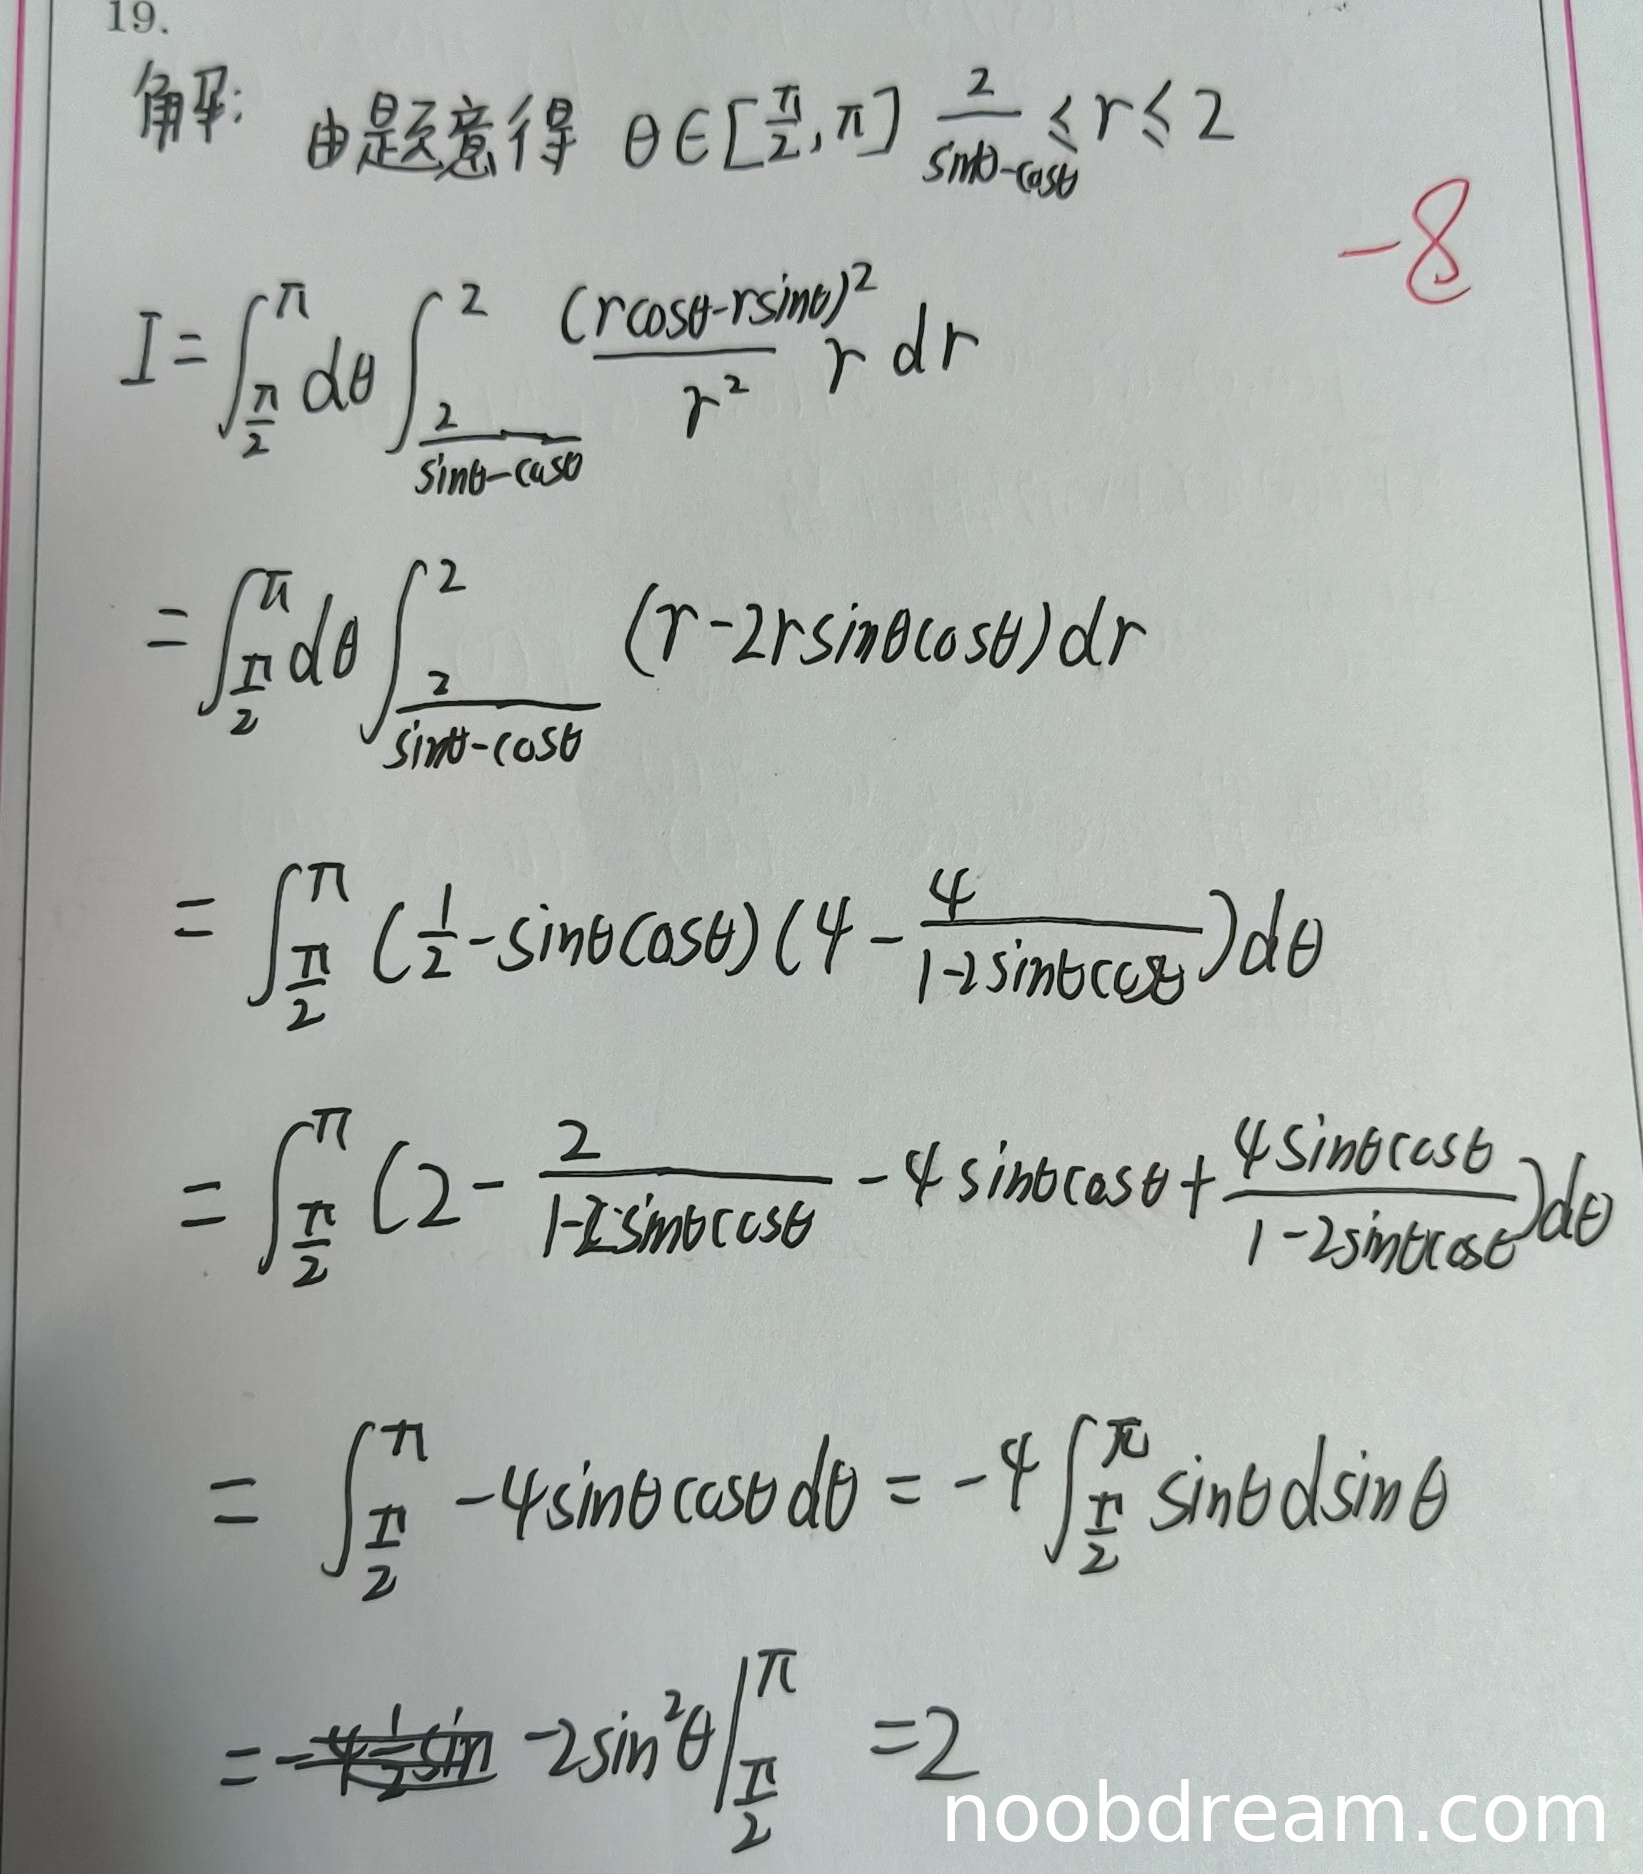 19.
解: 由题意得 θ∈[π/2, π] 2/(sinθ-cosθ) ≤ r ≤ 2
-8
I = ∫_{π/2}^{π} dθ ∫_{2/(sinθ-cosθ)}^{2} (rcosθ-rsinθ)²/r² r dr
= ∫_{π/2}^{π} dθ ∫_{2/(sinθ-cosθ)}^{2} (r-2rsinθcosθ)dr
= ∫_{π/2}^{π} (1/2 - sinθcosθ)(4 - 4/(1-2sinθcosθ))dθ
= ∫_{π/2}^{π} (2 - 2/(1-2sinθcosθ) - 4sinθcosθ + 4sinθcosθ/(1-2sinθcosθ))dθ
= ∫_{π/2}^{π} -4sinθcosθdθ = -4∫_{π/2}^{π} sinθdsinθ
= -2sin²θ|_{π/2}^{π} = 2
noobdream.com